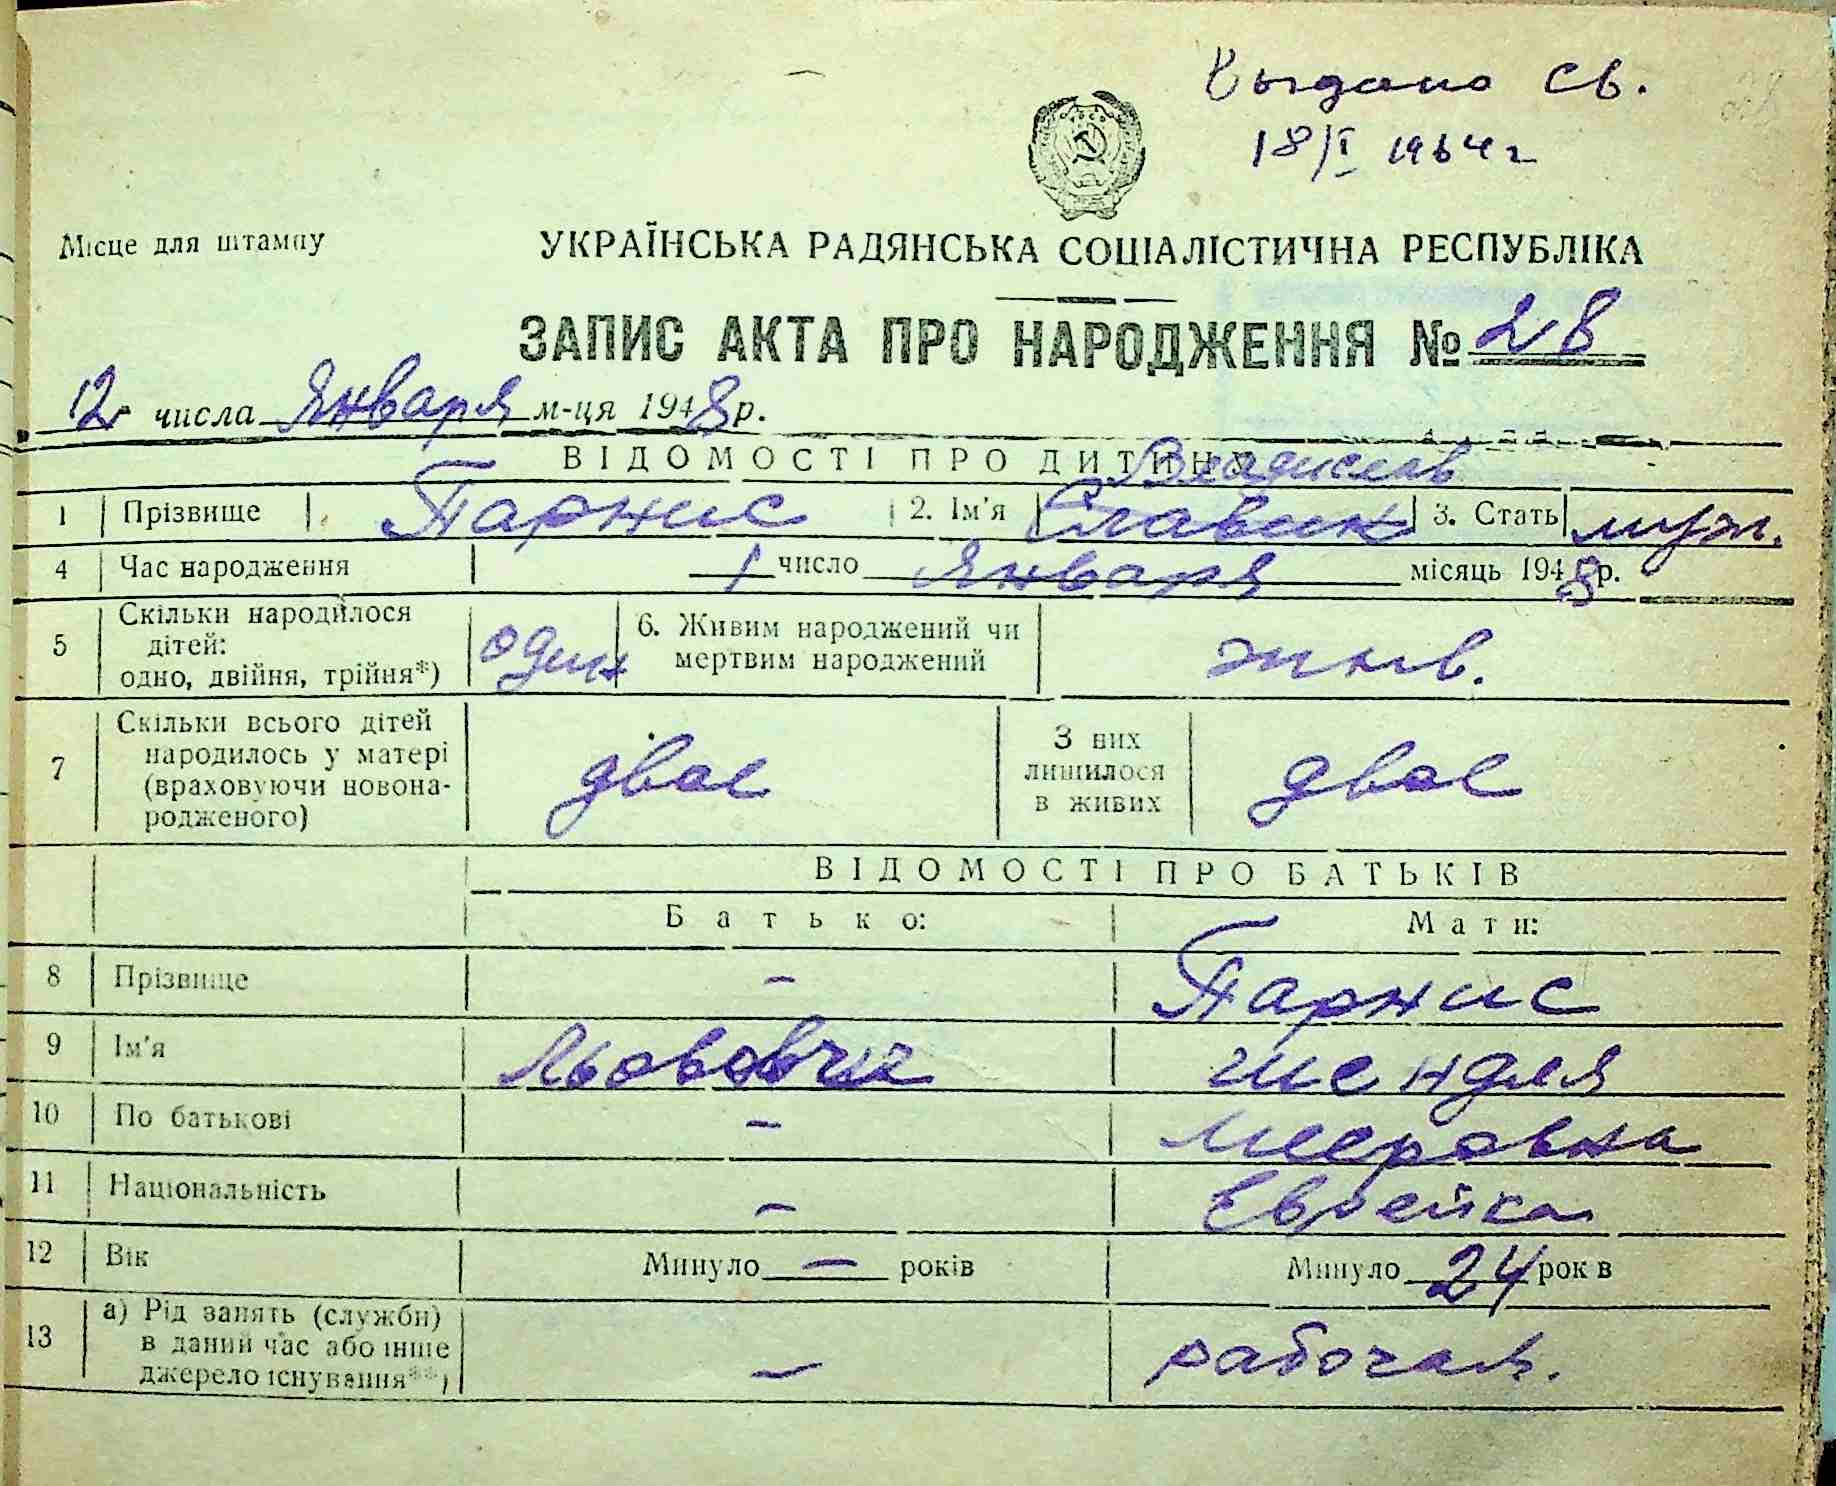 Выдано св.
18/I 1964 г
Місце для штампу
УКРАЇНСЬКА РАДЯНСЬКА СОЦІАЛІСТИЧНА РЕСПУБЛІКА
ЗАПИС АКТА ПРО НАРОДЖЕННЯ № 28
12 числа Января м-ця 1948 р.
ВІДОМОСТІ ПРО ДИТИНУ
Владислав
1 Прізвище Парнис 2. Ім'я Славик 3. Стать муж.
4 Час народження 1 число Января місяць 1948 р.
5 Скільки народилося дітей: одно, двійня, трійня*) один 6. Живим народжений чи мертвим народжений жив.
7 Скільки всього дітей народилось у матері (враховуючи новонародженого) двое З них лишилося в живих двое
ВІДОМОСТІ ПРО БАТЬКІВ
Батько: Мати:
8 Прізвище – Парнис
9 Ім'я Львович Шендля
10 По батькові – Мееровна
11 Національність – Еврейка
12 Вік Минуло – років Минуло 24 років
13 а) Рід занять (служби) в даний час або інше джерело існування**) – рабочая.